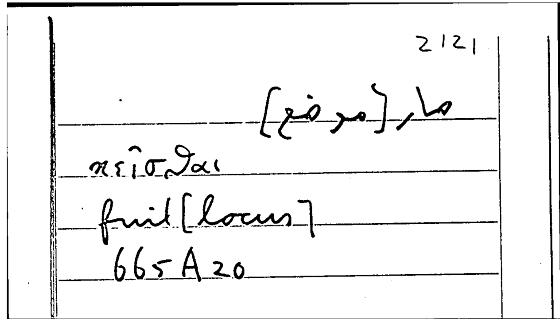 2121
صار [موضع]
κεῖσθαι
fuit [locus]
665 A 20